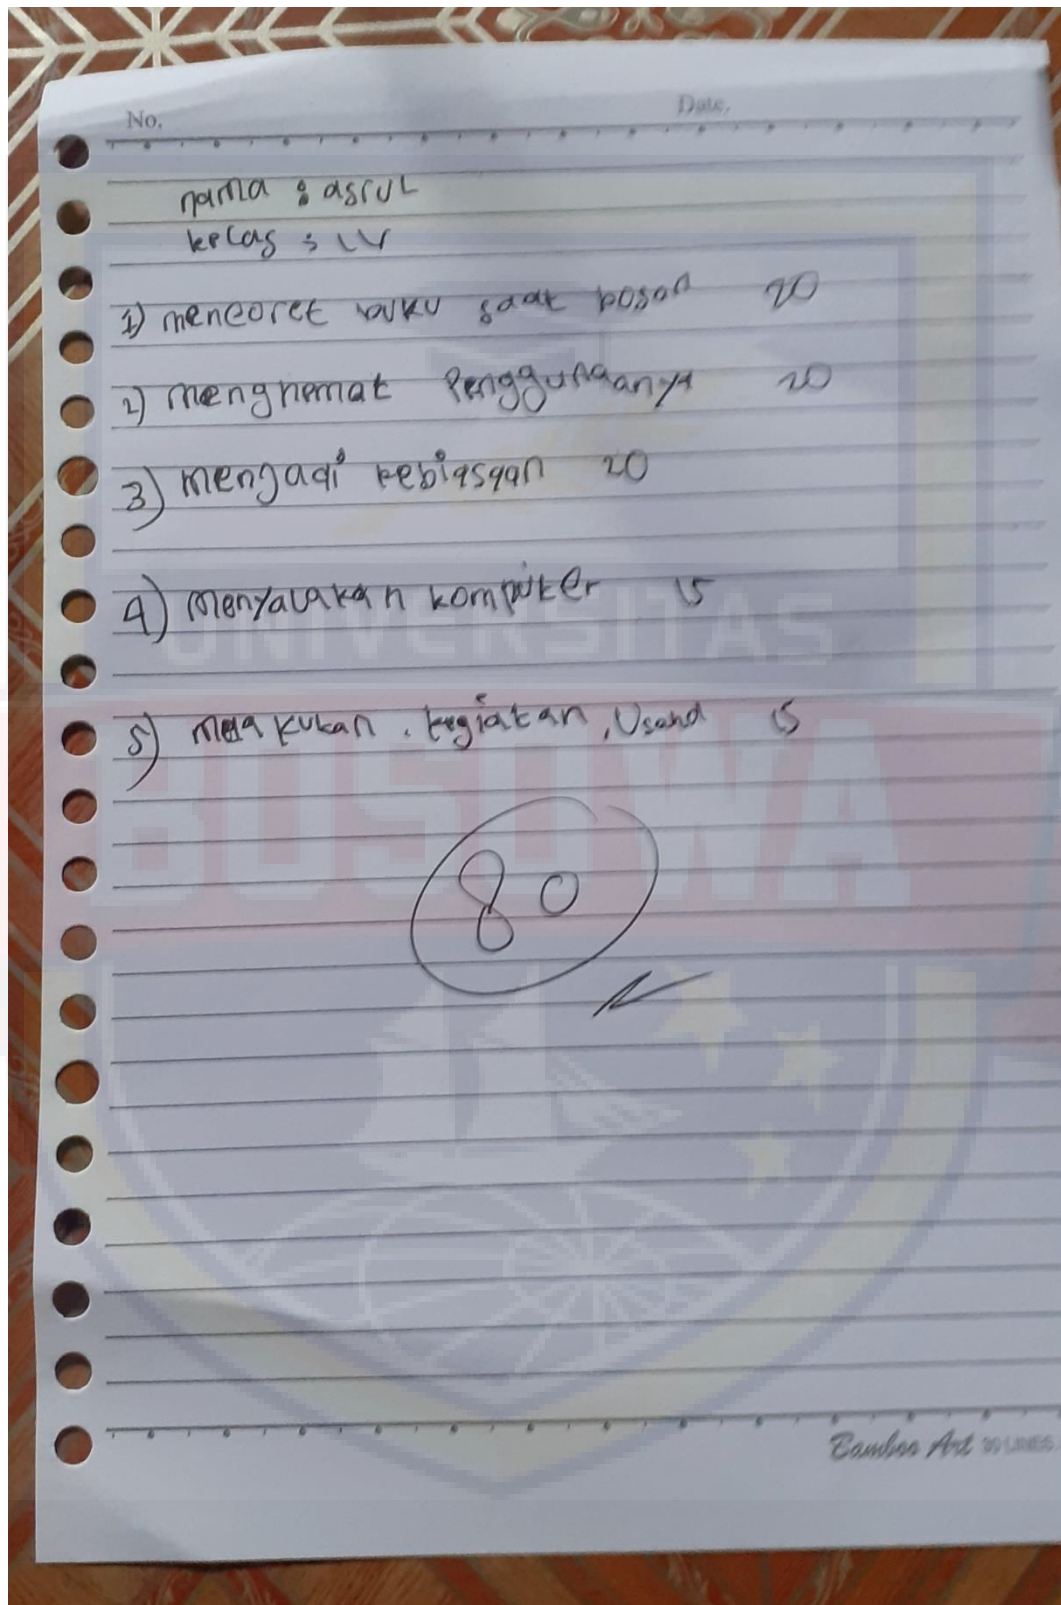 No. Date.
nama : asrul
kelas : IV
1) mencoret buku saat bosan 20
2) menghemat Penggunaanya 20
3) mengadi kebiasaan 20
4) menyalakan komputer 15
UNIVERSITAS
5) melakukan . kegiatan , Usaha 15
BOSOWA
80
Bamboo Art 30 LINES